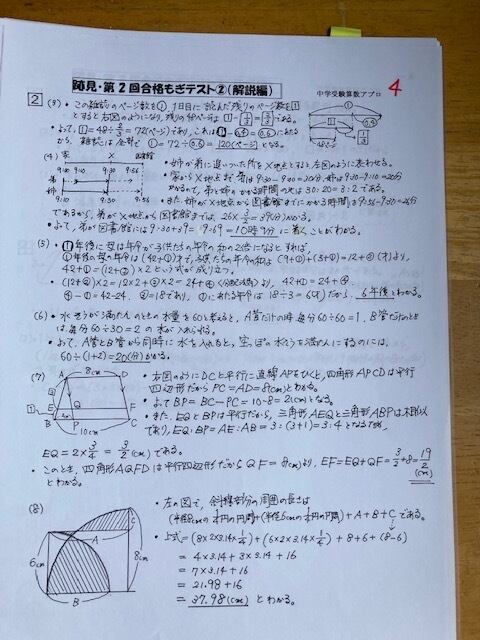 跡見・第2回合格もぎテスト②(解説編)
中学受験算数アプロ
4
2 (3)・この雑誌のページ数を①, 1日目に読んだ残りのページ数を1
とすると右図のようになり, 残りの
よって, 1=48÷2/3=72(ページ)であり, これは
から, 雑誌は全部で ①=72÷0.6=120(ページ)となる。
(4) 家 X 図書館
9:10 9:30 9:56
弟
姉
9:10 9:30 9:56
・姉が弟に追いついた所をX地点とすると, 左図のように表わせる。
・また, 姉がX地点から図書館までにかかる時間は 9:56-9:30=26分
であるから, 弟がX地点から図書館までは, 26×3/2=39(分)かかる。
・よって, 弟が図書館には 9:30+39分=9:69=10時9分に着くことがわかる。
(5)・1年後に母は年令が子供たちの年令の和の2倍になるとすれば,
42+①=(12+②)×2 という式が成り立つ。
・(12+②)×2=12×2+②×2=24+④(分配法則)より, 42+①=24+④
④-①=42-24, ③=18であり, ①にあたる年令は 18÷3=6(才)だから, 6年後とわかる。
(6)・水そうが満たんのときの水量を60と考えると, A管だけの時, 毎分60÷60=1, B管だけのとき
は, 毎分60÷30=2の水が入れられる。
・よって, A管とB管から同時に水を入れると, 空っぽの水そうを満たんにするのには,
60÷(1+2)=20(分)かかる。
(7)
8cm
A D
3
1
E Q F
B P C
10cm
・右図のようにDCと平行に直線APをひくと, 四角形APCDは平行
四辺形だからPC=AD=8(cm)とわかる。
・よってBP=BC-PC=10-8=2(cm)となる。
・また, EQとBPは平行だから, 三角形AEQと三角形ABPは相似
であり, EQ:BP=AE:AB=3:(3+1)=3:4となるから,
EQ=2×3/4=3/2(cm)である。
・このとき, 四角形AQFDは平行四辺形だからQF=8(cm)より, EF=EQ+QF=3/2+8=19/2(cm)
とわかる。
(8)
C
A
6cm
8cm
B
・左の図で, 斜線部分の周囲の長さは
(半径8cmの1/4円の円周)+(半径6cmの1/4円の円周)+A+B+Cである。
・上式=(8×2×3.14×1/4)+(6×2×3.14×1/4)+8+6+(8-6)
=4×3.14+3×3.14+16
=7×3.14+16
=21.98+16
=37.98(cm) とわかる。